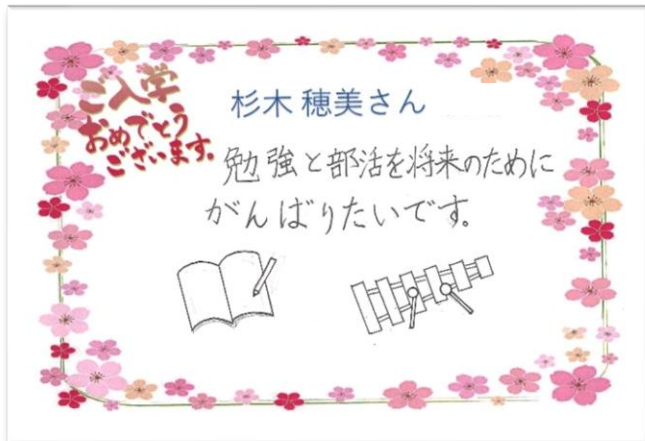 ご入学
おめでとう
ございます。
杉木 穂美さん
勉強と部活を将来のために
がんばりたいです。